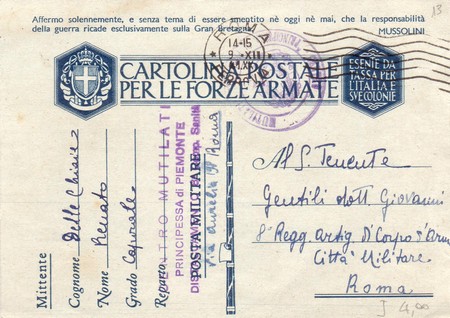 13
Affermo solennemente, e senza tema di essere smentito nè oggi nè mai, che la responsabilità
della guerra ricade esclusivamente sulla Gran Bretagna.
MUSSOLINI
ROMA
14-15
FERROVIA
CARTOLINA POSTALE
PER LE FORZE ARMATE
ESENTE DA
TASSA PER
L'ITALIA E
SVE COLONIE
Mittente
Cognome Delle Chiaie
Nome Renato
Grado Caporale
Reparto
CENTRO MUTILATI
PRINCIPESSA di PIEMONTE
Sanità
POSTA MILITARE
Via Aurelia Roma
Al S. Tenente
Gentili dott. Giovanni
8° Regg. Artig. D'Corpo d'Arm
Città Militare
Roma
4,00